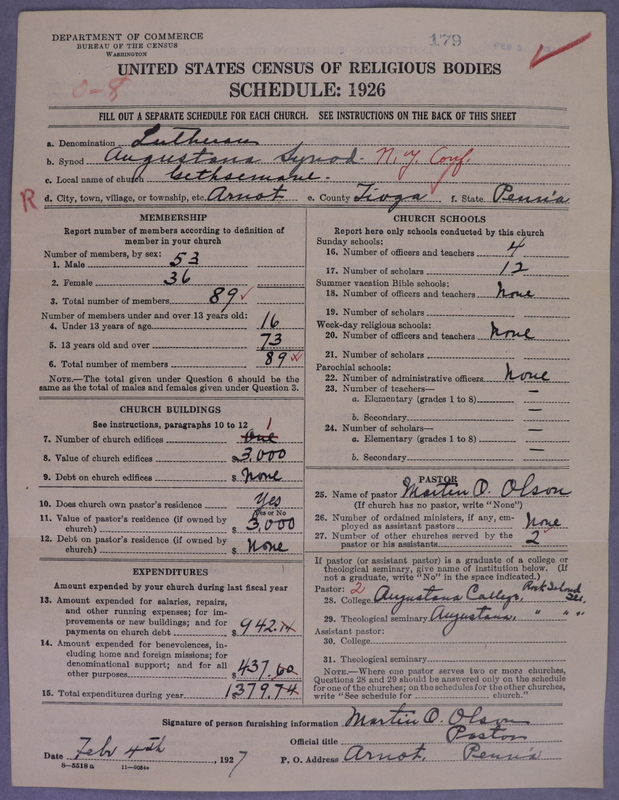 DEPARTMENT OF COMMERCE
BUREAU OF THE CENSUS
WASHINGTON
179
0-8
UNITED STATES CENSUS OF RELIGIOUS BODIES
SCHEDULE: 1926
FILL OUT A SEPARATE SCHEDULE FOR EACH CHURCH. SEE INSTRUCTIONS ON THE BACK OF THIS SHEET
a. Denomination Lutheran
b. Synod Augustana Synod. N.Y. Conf.
c. Local name of church Gethsemane.
R d. City, town, village, or township, etc. Arnot e. County Tioga f. State Penn'a
MEMBERSHIP
Report number of members according to definition of
member in your church
Number of members, by sex:
1. Male 53
2. Female 36
3. Total number of members 89
Number of members under and over 13 years old:
4. Under 13 years of age 16
5. 13 years old and over 73
6. Total number of members 89
NOTE.—The total given under Question 6 should be the
same as the total of males and females given under Question 3.
CHURCH BUILDINGS
See instructions, paragraphs 10 to 12
7. Number of church edifices One 1
8. Value of church edifices $3,000
9. Debt on church edifices $ None
10. Does church own pastor's residence Yes
Yes or No
11. Value of pastor's residence (if owned by
church) $ 3,000
12. Debt on pastor's residence (if owned by
church) $ None
EXPENDITURES
Amount expended by your church during last fiscal year
13. Amount expended for salaries, repairs,
and other running expenses; for im-
provements or new buildings; and for
payments on church debt $ 942.14
14. Amount expended for benevolences, in-
cluding home and foreign missions; for
denominational support; and for all
other purposes $ 437.60
15. Total expenditures during year 1379.74
CHURCH SCHOOLS
Report here only schools conducted by this church
Sunday schools:
16. Number of officers and teachers 4
17. Number of scholars 12
Summer vacation Bible schools:
18. Number of officers and teachers None
19. Number of scholars
Week-day religious schools:
20. Number of officers and teachers None
21. Number of scholars
Parochial schools:
22. Number of administrative officers None
23. Number of teachers—
a. Elementary (grades 1 to 8) —
b. Secondary —
24. Number of scholars—
a. Elementary (grades 1 to 8) —
b. Secondary —
PASTOR
25. Name of pastor Martin O. Olson
(If church has no pastor, write "None")
26. Number of ordained ministers, if any, em-
ployed as assistant pastors None
27. Number of other churches served by the
pastor or his assistants 2
If pastor (or assistant pastor) is a graduate of a college or
theological seminary, give name of institution below. (If
not a graduate, write "No" in the space indicated.)
Pastor: 2
28. College Augustana College, Rock Island Ill.
29. Theological seminary Augustana, " " "
Assistant pastor:
30. College
31. Theological seminary
NOTE.—Where one pastor serves two or more churches,
Questions 28 and 29 should be answered only on the schedule
for one of the churches; on the schedules for the other churches,
write "See schedule for church."
Signature of person furnishing information Martin O. Olson
Official title Pastor
Date Feb 4th, 1927 P. O. Address Arnot, Penn'a
8—5518a 11—9024